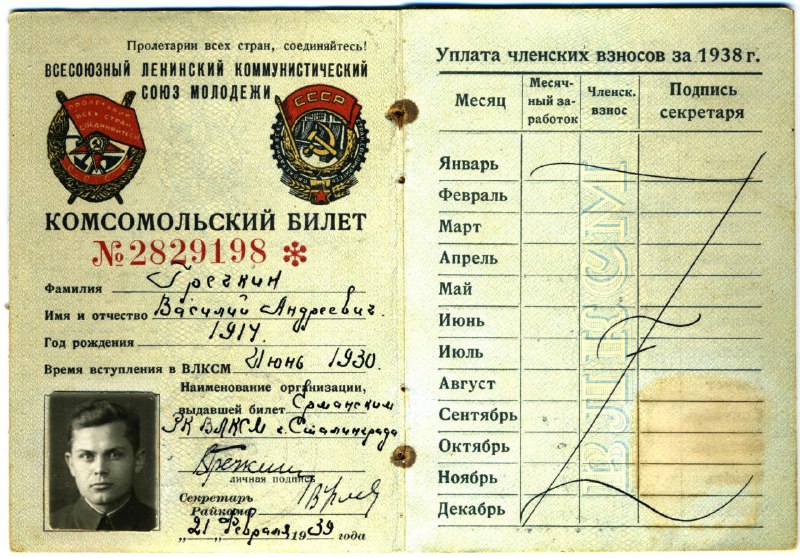 Пролетарии всех стран, соединяйтесь!
ВСЕСОЮЗНЫЙ ЛЕНИНСКИЙ КОММУНИСТИЧЕСКИЙ
СОЮЗ МОЛОДЕЖИ
ПРОЛЕТАРИИ
ВСЕХ СТРАН
СОЕДИНЯЙТЕСЬ
СССР
КОМСОМОЛЬСКИЙ БИЛЕТ
№ 2829198
Фамилия Гречкин
Имя и отчество Василий Андреевич.
Год рождения 1917
Время вступления в ВЛКСМ Июнь 1930.
Наименование организации,
выдавшей билет Ерманским
РК ВЛКСМ г. Сталинграда
Гречкин
личная подпись
Секретарь
Райкома
"21" Февраля 1939 года
Уплата членских взносов за 1938 г.
Месяц
Месяч-
ный за-
работок
Членск.
взнос
Подпись
секретаря
Январь
Февраль
Март
Апрель
Май
Июнь
Июль
Август
Сентябрь
Октябрь
Ноябрь
Декабрь
ВЛКСМ